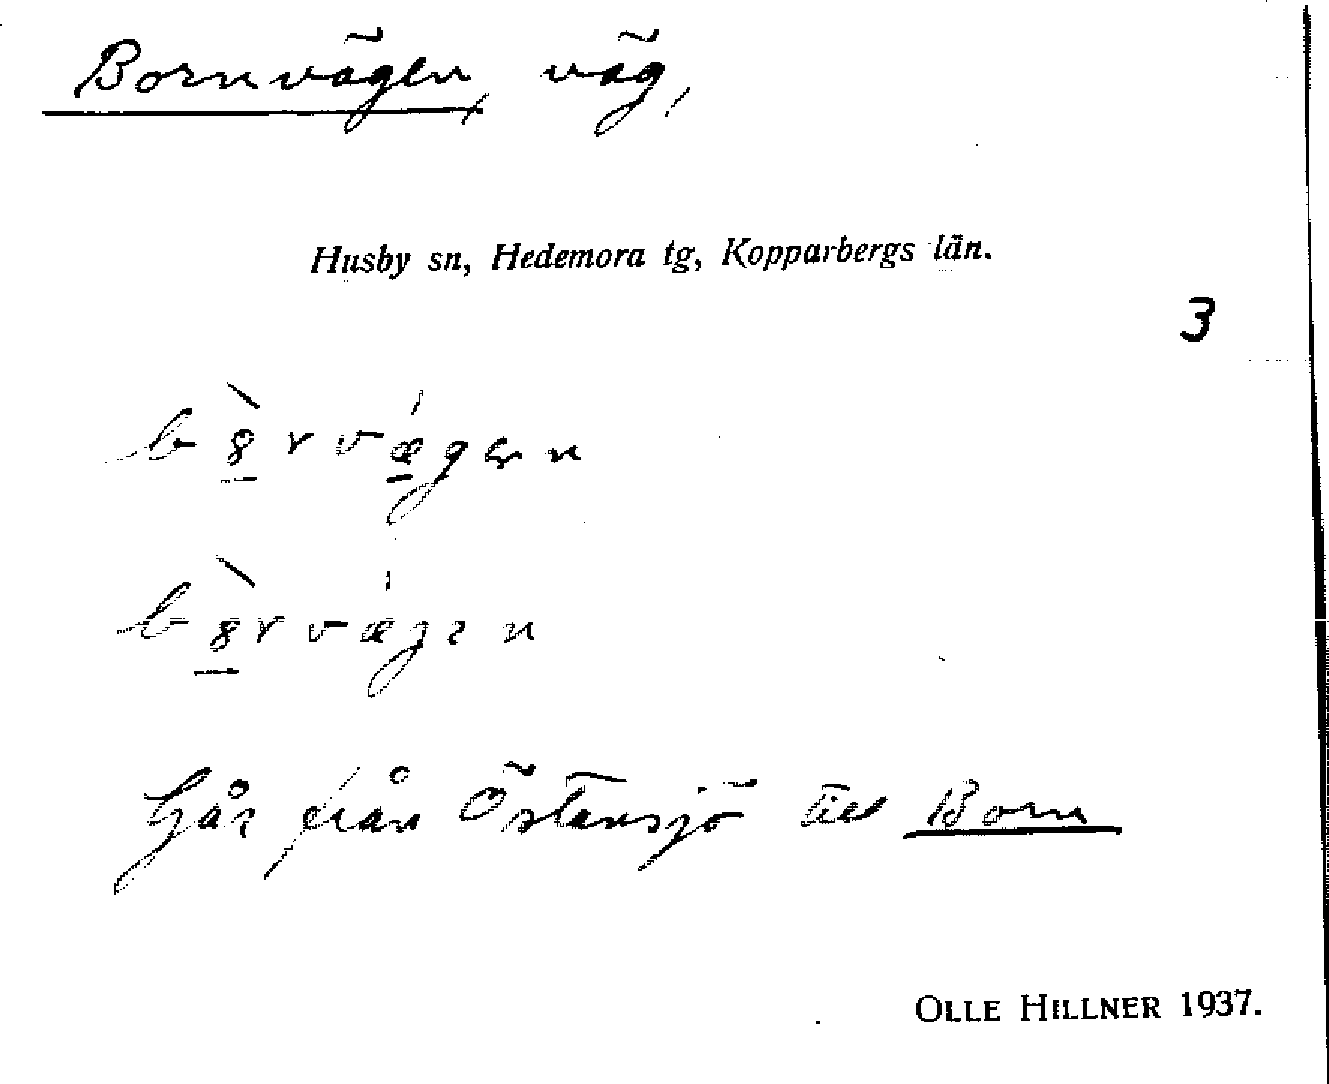 Bornvägen, väg,
Husby sn, Hedemora tg, Kopparbergs län.
3
Går från Östansjö till Born
OLLE HILLNER 1937.